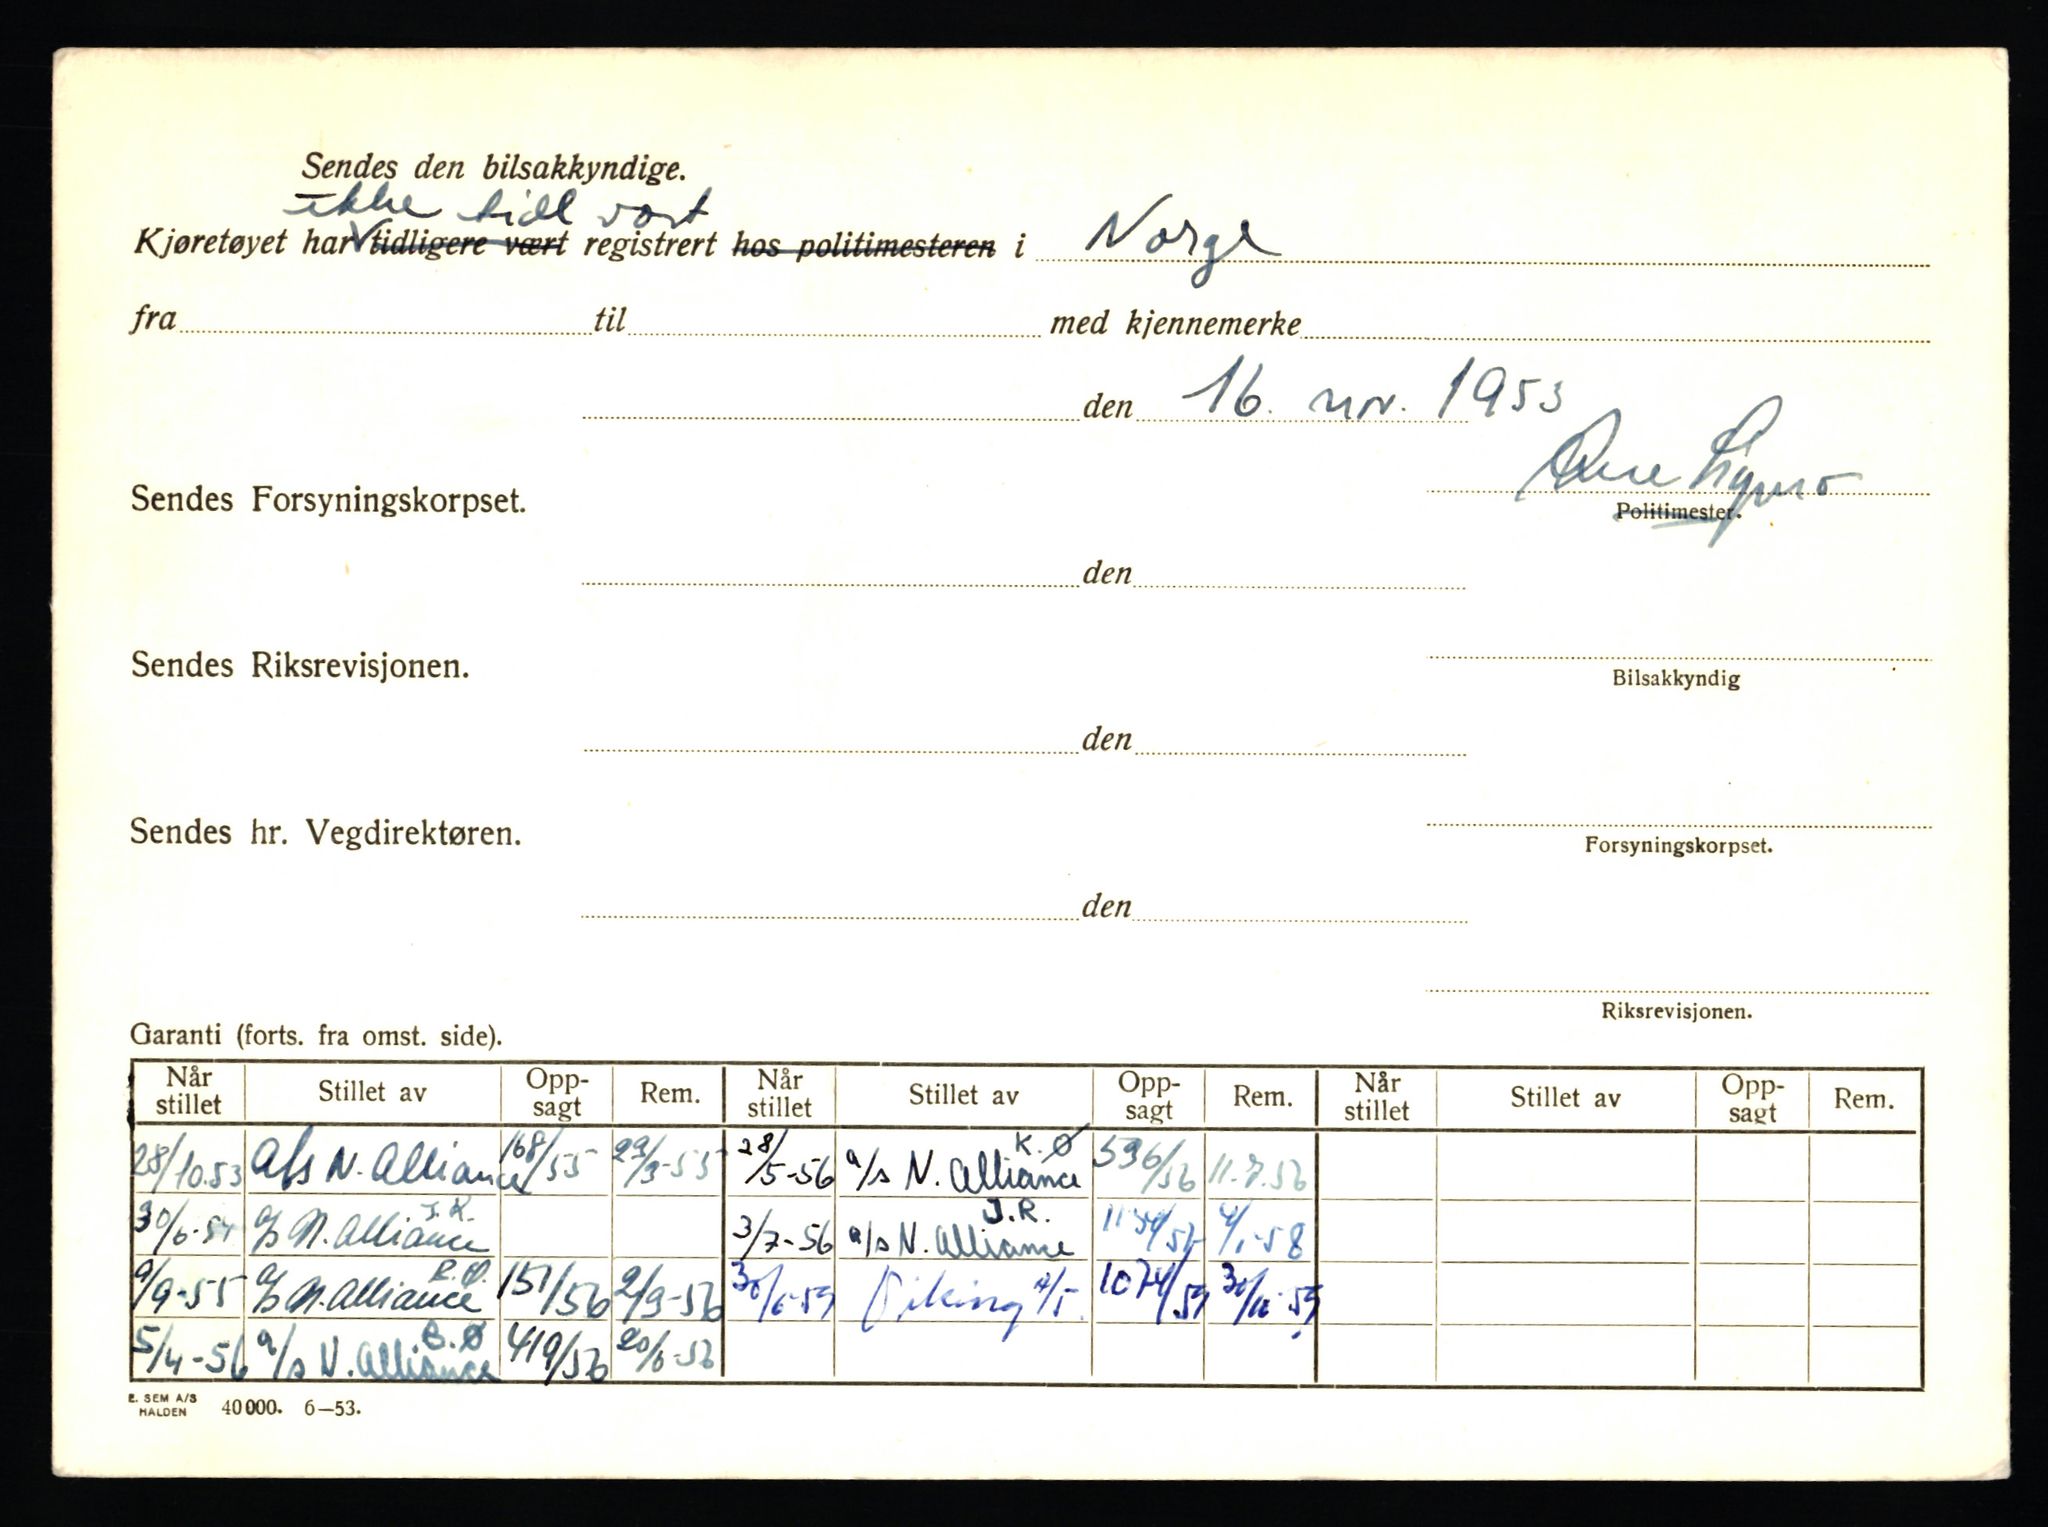 Sendes den bilsakkyndige.
ikke tidl vært
Kjøretøyet har tidligere vært registrert hos politimesteren i Norge
fra til med kjennemerke
den 16. nov. 1953
Sendes Forsyningskorpset.
Politimester.
den
Sendes Riksrevisjonen.
Bilsakkyndig
den
Sendes hr. Vegdirektøren.
Forsyningskorpset.
den
Riksrevisjonen.
Garanti (forts. fra omst. side).
Når stillet Stillet av Opp-sagt Rem. Når stillet Stillet av Opp-sagt Rem. Når stillet Stillet av Opp-sagt Rem.
28/10.53 A/s N. Alliance 168/55 29/3-55 28/5-56 a/s N. Alliance K.Ø 536/56 11.7.56
30/6-54 a/s N. Alliance J.R. 3/7-56 a/s N. Alliance J.R. 4/1-58
9/9-55 a/s N. Alliance 151/56 2/3-56 Viking A/S. 1074/59
5/4-56 a/s N. Alliance B.Ø 419/56 20/6-56
E. SEM A/S
HALDEN 40000. 6–53.